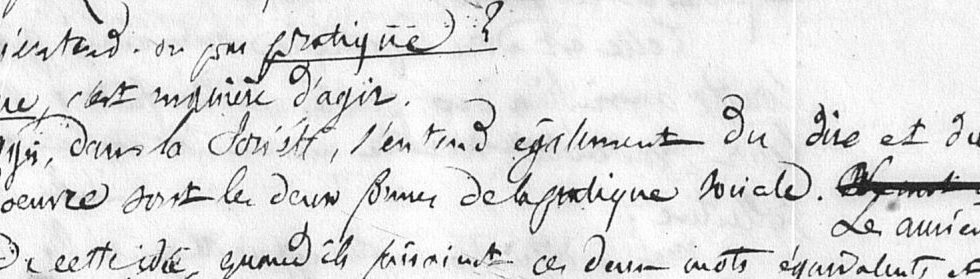 s'entend-on par pratique ?
ue, c'est manière d'agir.
agir, dans la Société, s'entend également du dire et du
oeuvre sont les deux formes de la pratique sociale.
Les ancien
cette idée, quand ils faisaient ces deux mots équivalents